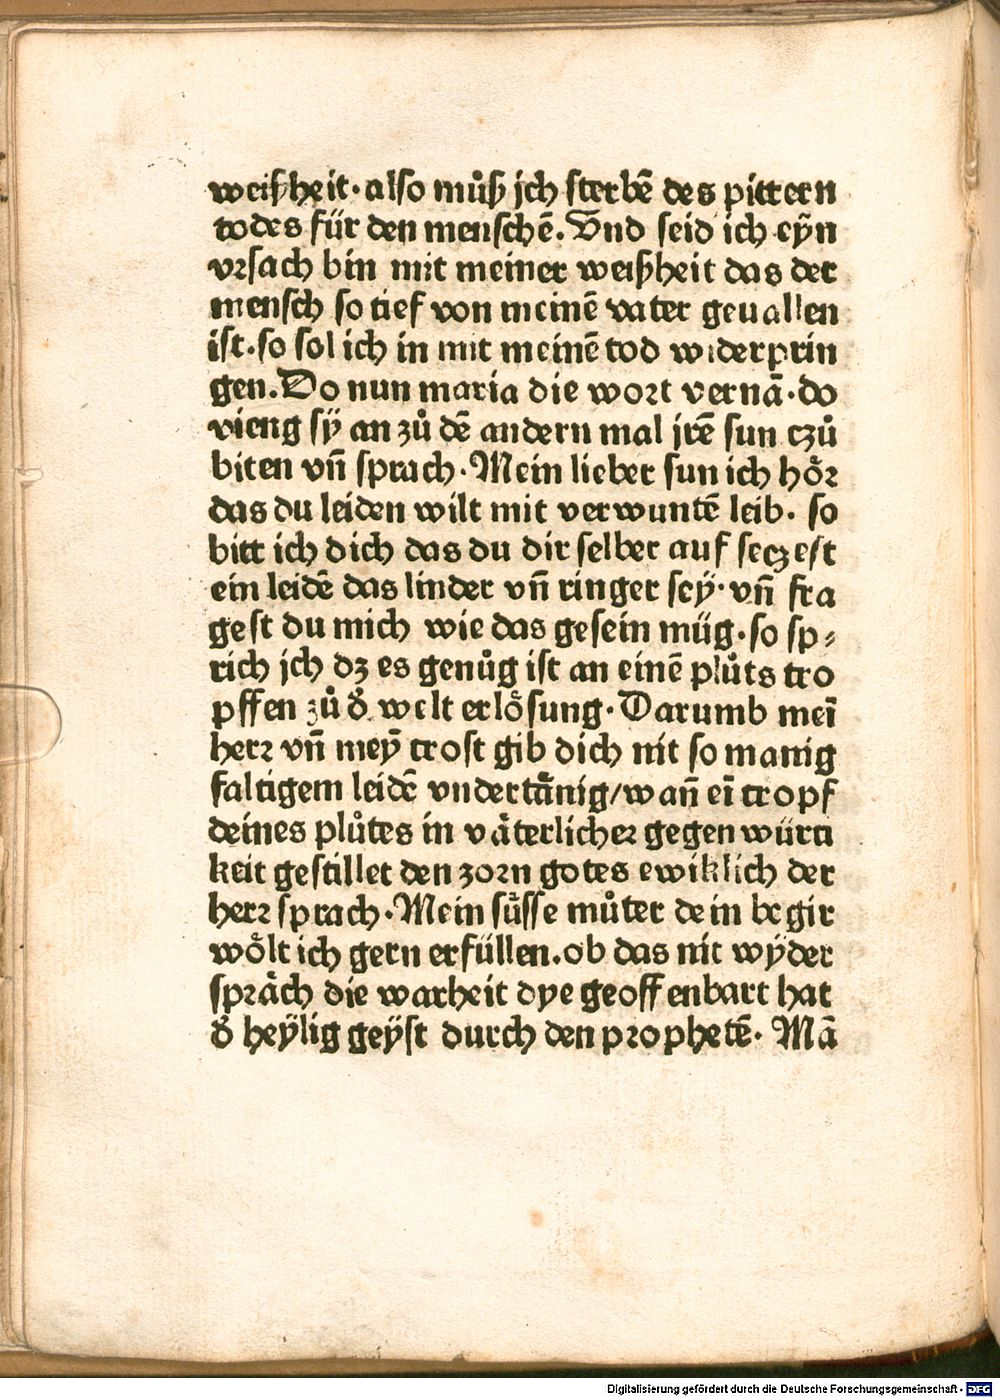 weißheit· also mů̊ß jch sterbē des pittern
todes für den menschē. Vnd seid ich eyn
vrsach bin mit meiner weißheit das der
mensch so tief von meinē vater geuallen
ist· so sol ich in mit meinē tod widerprin
gen. Do nun maria die wort vernā· do
vieng sÿ an zů dē andern mal jrē sun czů
biten vñ sprach· Mein lieber sun ich hör
das du leiden wilt mit verwuntē leib· so
bitt ich dich das du dir selber auf seczest
ein leidē das linder vñ ringer sey· vñ fra
gest du mich wie das gesein müg· so sp⸗
rich jch dz es genůg ist an einē plůts tro
pffen zů ď welt erlösung· Darumb meī
herr vñ meȳ trost gib dich nit so manig
faltigem leidē vndertänig/wañ eī tropf
deines plůtes in väterlicher gegenwürti
keit gestillet den zorn gotes ewiklich der
herr sprach· Mein süsse můter dein begir
wölt ich gern erfüllen. ob das nit wÿder
spräch die warheit dye geoffenbart hat
ď heÿlig geÿst durch den prophetē· Mā
Digitalisierung gefördert durch die Deutsche Forschungsgemeinschaft - DFG